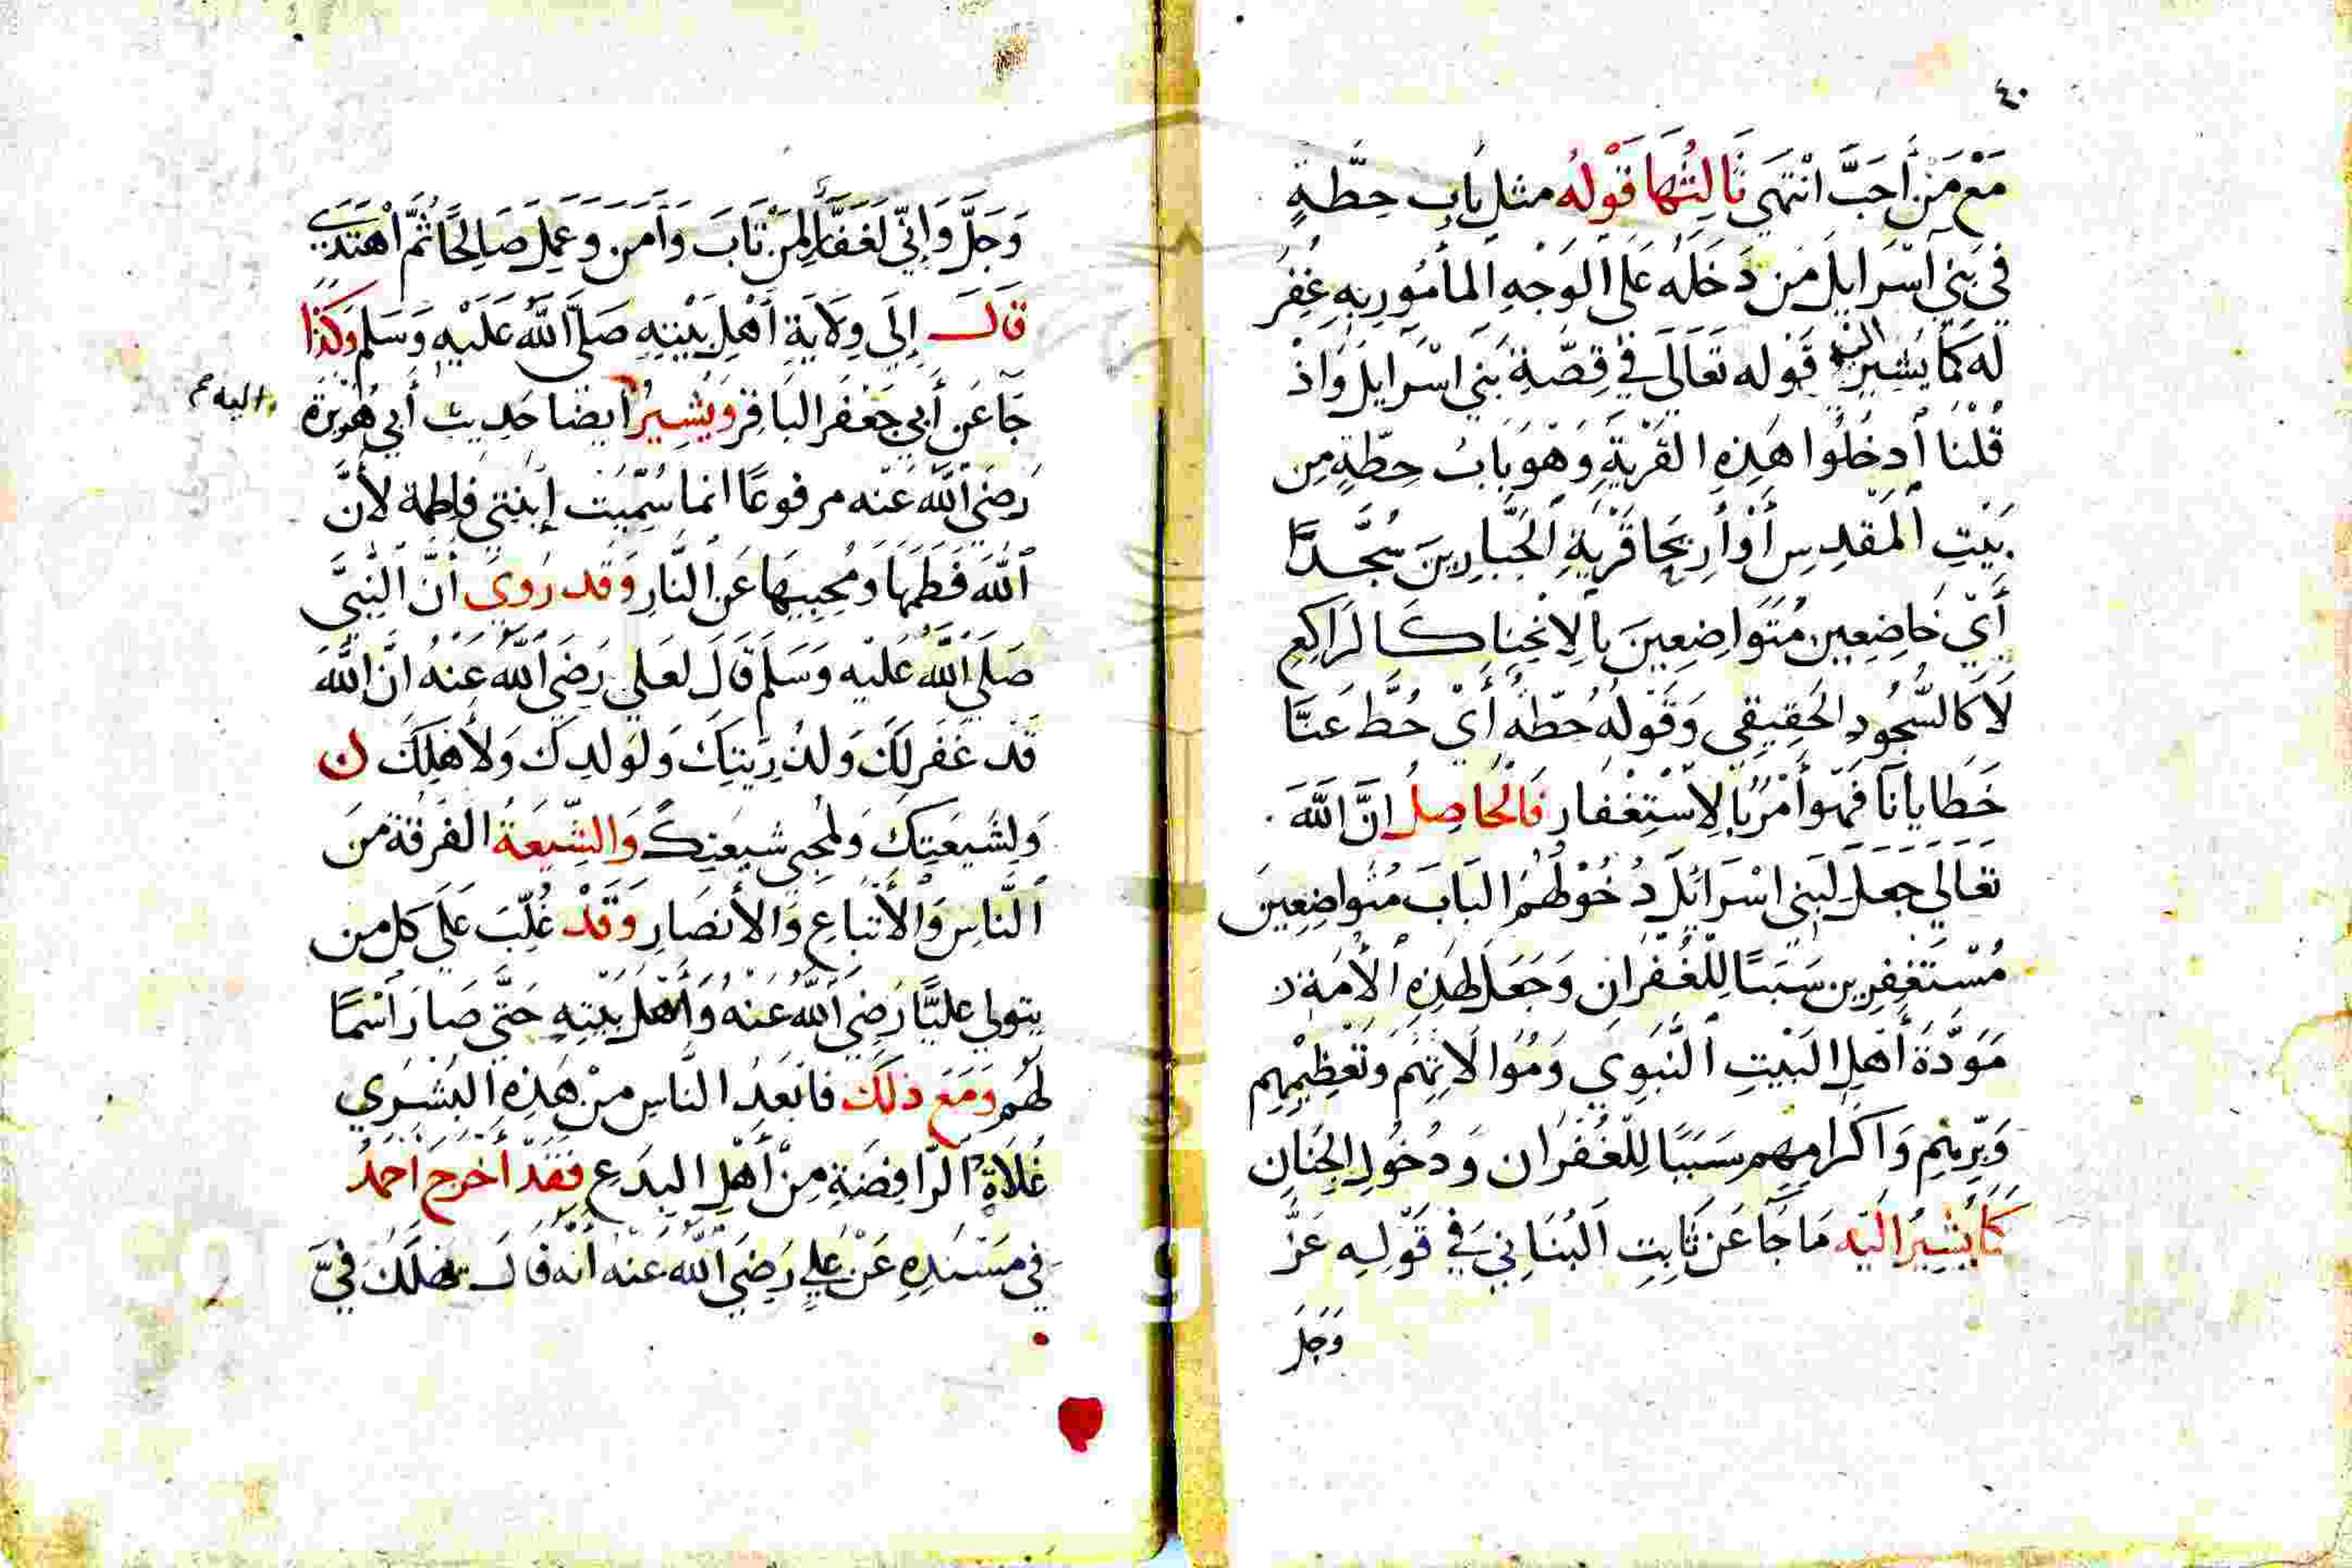 ٤٠
مَعْ مَنْ أَحَبَّ انْتَهَى ثَالِثُهَا قَوْلُه مثل بَاب حِطَّةٍ
فِي بَنِي اسْرَايِلَ مَن دَخَلَه عَلَى الوَجْهِ المأمُورِ بِهِ غُفِرُ
لَه كَمَا يُشِيرُ اليه قَوْله تَعَالَى فِي قِصَّةِ بَنِي اسْرَايلَ وَاذْ
قُلْنَا ادخُلُوا هَذِهِ القَرْيَةَ وَهْوَ بَابُ حِطَّةٍ مِن
بَيْتِ المَقدِسِ أَوْ أَرِيحَا قَرْيَةِ الجَبَّارِينَ سُجَّدًا
أَيْ خَاضِعِين مُتَوَاضِعِينَ بِالِانْحِنَا كَالرَاكِعِ
لَا كَالسُّجُودِ الحَقِيقِي وَقَوْلُهُ حُطّةٌ أَيْ حُطَّ عَنَّا
خَطَايَانَا فَهْوَ أَمْرٌ بِالِاسْتِغْفَارِ فَالْحَاصِلُ انَّ اللَّهَ
تَعَالَى جَعَلَ لِبَنِي اسْرَائِلَ دُخُوْلَهُمُ البَابَ مُتَوَاضِعِينَ
مُسْتَغْفِرِين سَبَبًا لِلْغُفْرَانِ وَجَعَلَ لِهَذِهِ الأُمَةِ
مَوَدَّةَ أَهْلِ البَيْتِ النَّبَوِي وَمُوَالَاتِهُم وَتَعْظِيْمِهِم
وَبِرِّهِم وَاكْرَامِهِم سَبَبًا لِلْغُفْرَان وَدُخُولِ الجِنَانِ
كَمَا يُشِيرُ الَيْه مَا جَا عَن ثَابِتِ البُنَانِي فِي قَوْلِه عَزَّ
وَجَلَ
وَجَلَّ وَإِنِّي لَغَفَّار لِمَنْ تَابَ وَآمَنَ وَعَمِلَ صَالِحًا ثُمَّ اهْتَدَى
قَالَ إِلَى وِلَايَةِ أَهْلِ بَيْتِهِ صَلَّى اللَّهُ عَلَيْهِ وَسَلم وَكَذَا
جَا عَن أَبِي جَعْفَر البَاقِر وَيُشِيرُ أيضًا حَدِيث أَبِي هُرَيْرَة
واليه صح
رَضِيَ اللَّهُ عَنْه مرفوعًا انما سُمِّيَت إِبْنَتِي فاطِمة لأنَّ
اللَّهَ فَطَمَهَا وَمُحِبِيهَا عَن النَّارِ وَقَد رُوِيَ أَنّ النَّبِيَّ
صَلَى اللَّهُ عَلَيْه وَسَلَم قَالَ لعَلي رَضِيَ اللَّهُ عَنْهُ انَّ اللَّهَ
قَد غَفَر لَكَ وَلذُرِّيَتِكَ وَلِوَلدِكَ وَلأهْلِكَ
وَلِشِيعَتِكَ وَلِمُحِبِي شِيعَتِكَ وَالشِّيعَةُ الفِرْقَة مِنَ
النَّاسِ وَالأَتْبَاعِ وَالأَنْصَارِ وَقَدْ غُلِّبَ عَلَى كل من
يتولى عليًّا رَضِيَ اللَّهُ عَنْهُ وَأَهْلَ بَيْتِهِ حَتَّى صَارَ اسْمًا
لَهُم وَمَعَ ذَلَكَ فَابعَدُ النَّاسِ مِنْ هَذِهِ البُشْرَى
غُلَاةُ الرَّافِضَةِ مِنْ أَهْلِ البِدَع فَقَدْ أَخْرَج احمدُ
فِي مَسْنَدِهِ عَنْ عَلِيٍ رَضِيَ اللَّهُ عَنْه أَنَّه قَالَ يَهْلَكُ فِيَّ